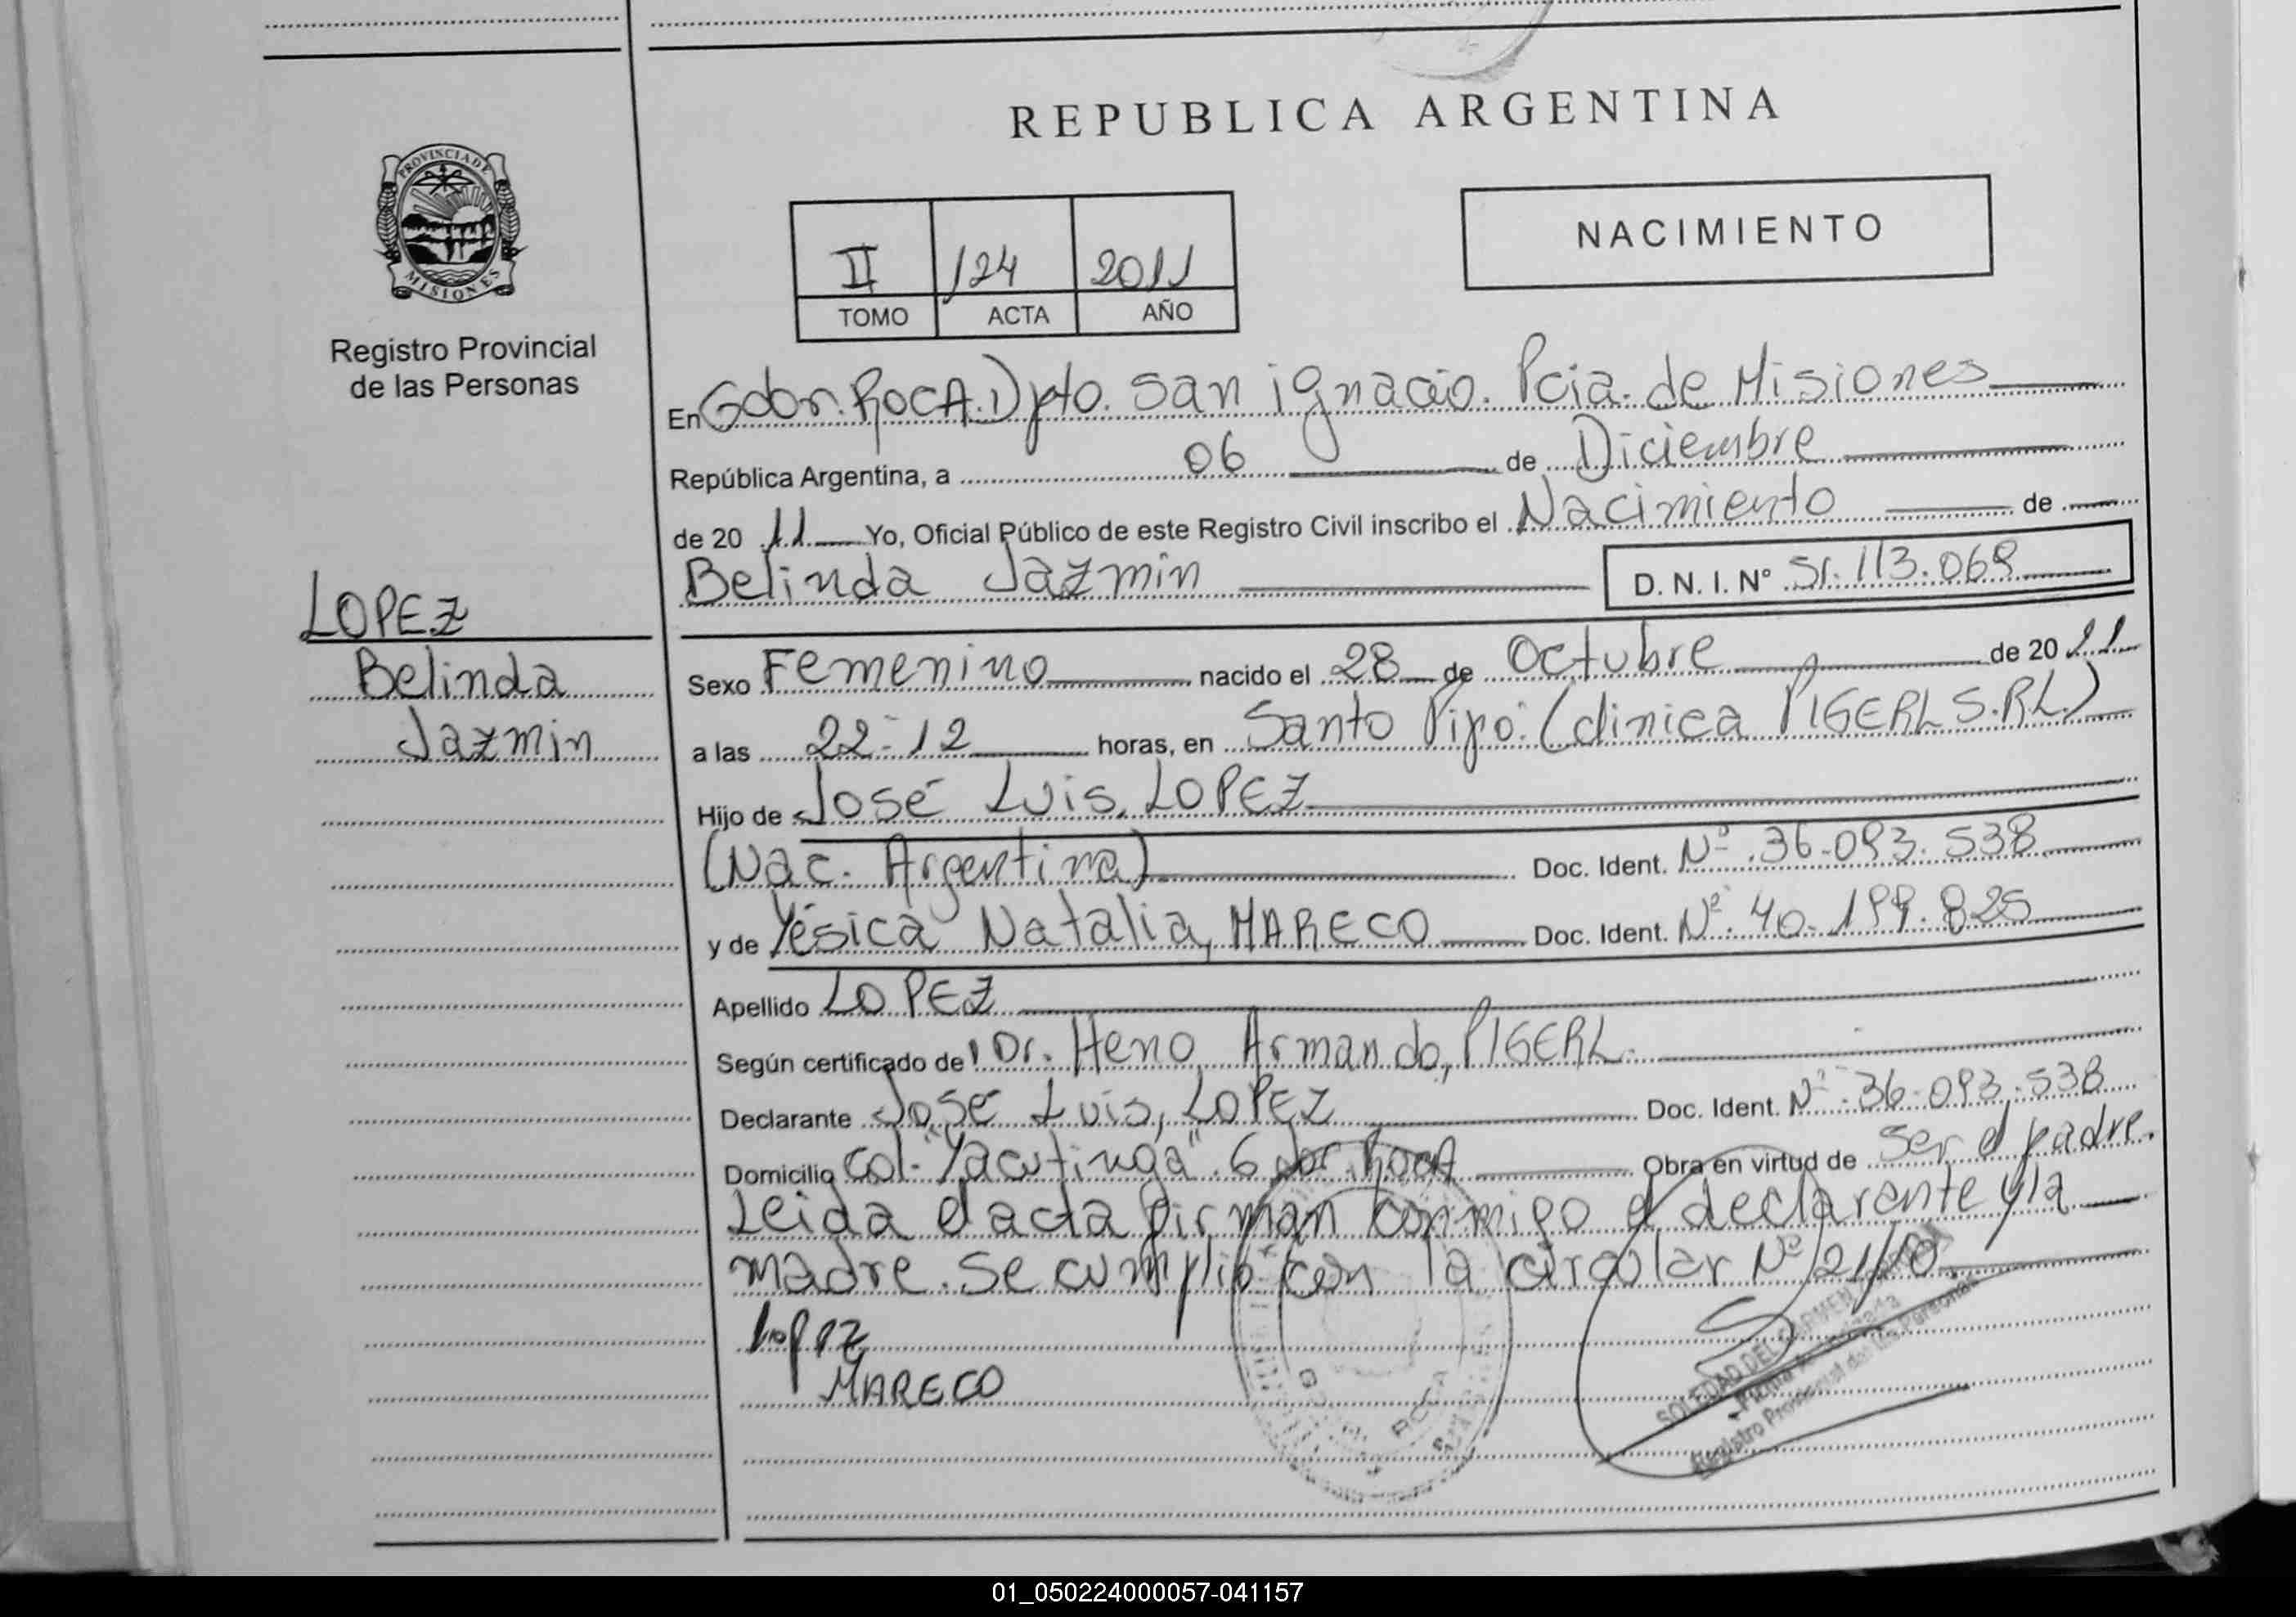 REPUBLICA ARGENTINA
PROVINCIA DE
MISIONES
Registro Provincial
de las Personas
NACIMIENTO
II 124 2011
TOMO ACTA AÑO
En Gdor. ROCA. Dpto. San ignacio. Pcia. de Misiones
República Argentina, a 06 de Diciembre
de 20 11 Yo, Oficial Público de este Registro Civil inscribo el Nacimiento de
Belinda Jazmin D. N. I. N° 51.113.069
LOPEZ
Belinda
Jazmin
Sexo Femenino nacido el 28 de Octubre de 20 11
a las 22-12 horas, en Santo Pipó. (clinica PIGERL S.R.L.)
Hijo de José Luis, LOPEZ
(Nac. Argentina) Doc. Ident. N°. 36.093.538
y de Yésica Natalia, MARECO Doc. Ident. N°. 40.199.825
Apellido LOPEZ
Según certificado de Dr. Heno Armando, PIGERL.
Declarante José Luis, LOPEZ Doc. Ident. N°. 36.093.538
Domicilio Col. "Yacutinga". Gdor. Roca Obra en virtud de Ser el padre.
Leida el acta firman conmigo el declarante y la
madre. Se cumplió con la circular N° 21/10.
Lopez
MARECO
ROCA
SOLEDAD DEL CARMEN
Registro Provincial de las Personas
01_050224000057-041157